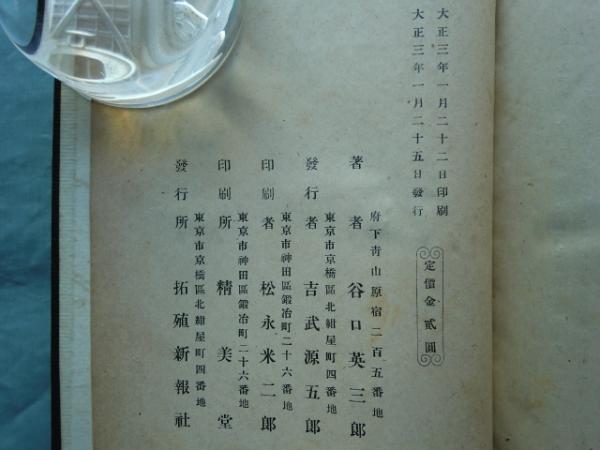 大正三年一月二十二日印刷
大正三年一月二十五日發行
定價金貳圓
府下靑山原宿二百五番地
著者 谷口英三郎
東京市京橋區北紺屋町四番地
發行者 吉武源五郎
東京市神田區鍛冶町二十六番地
印刷者 松永米二郎
東京市神田區鍛冶町二十六番地
印刷所 精美堂
東京市京橋區北紺屋町四番地
發行所 拓殖新報社